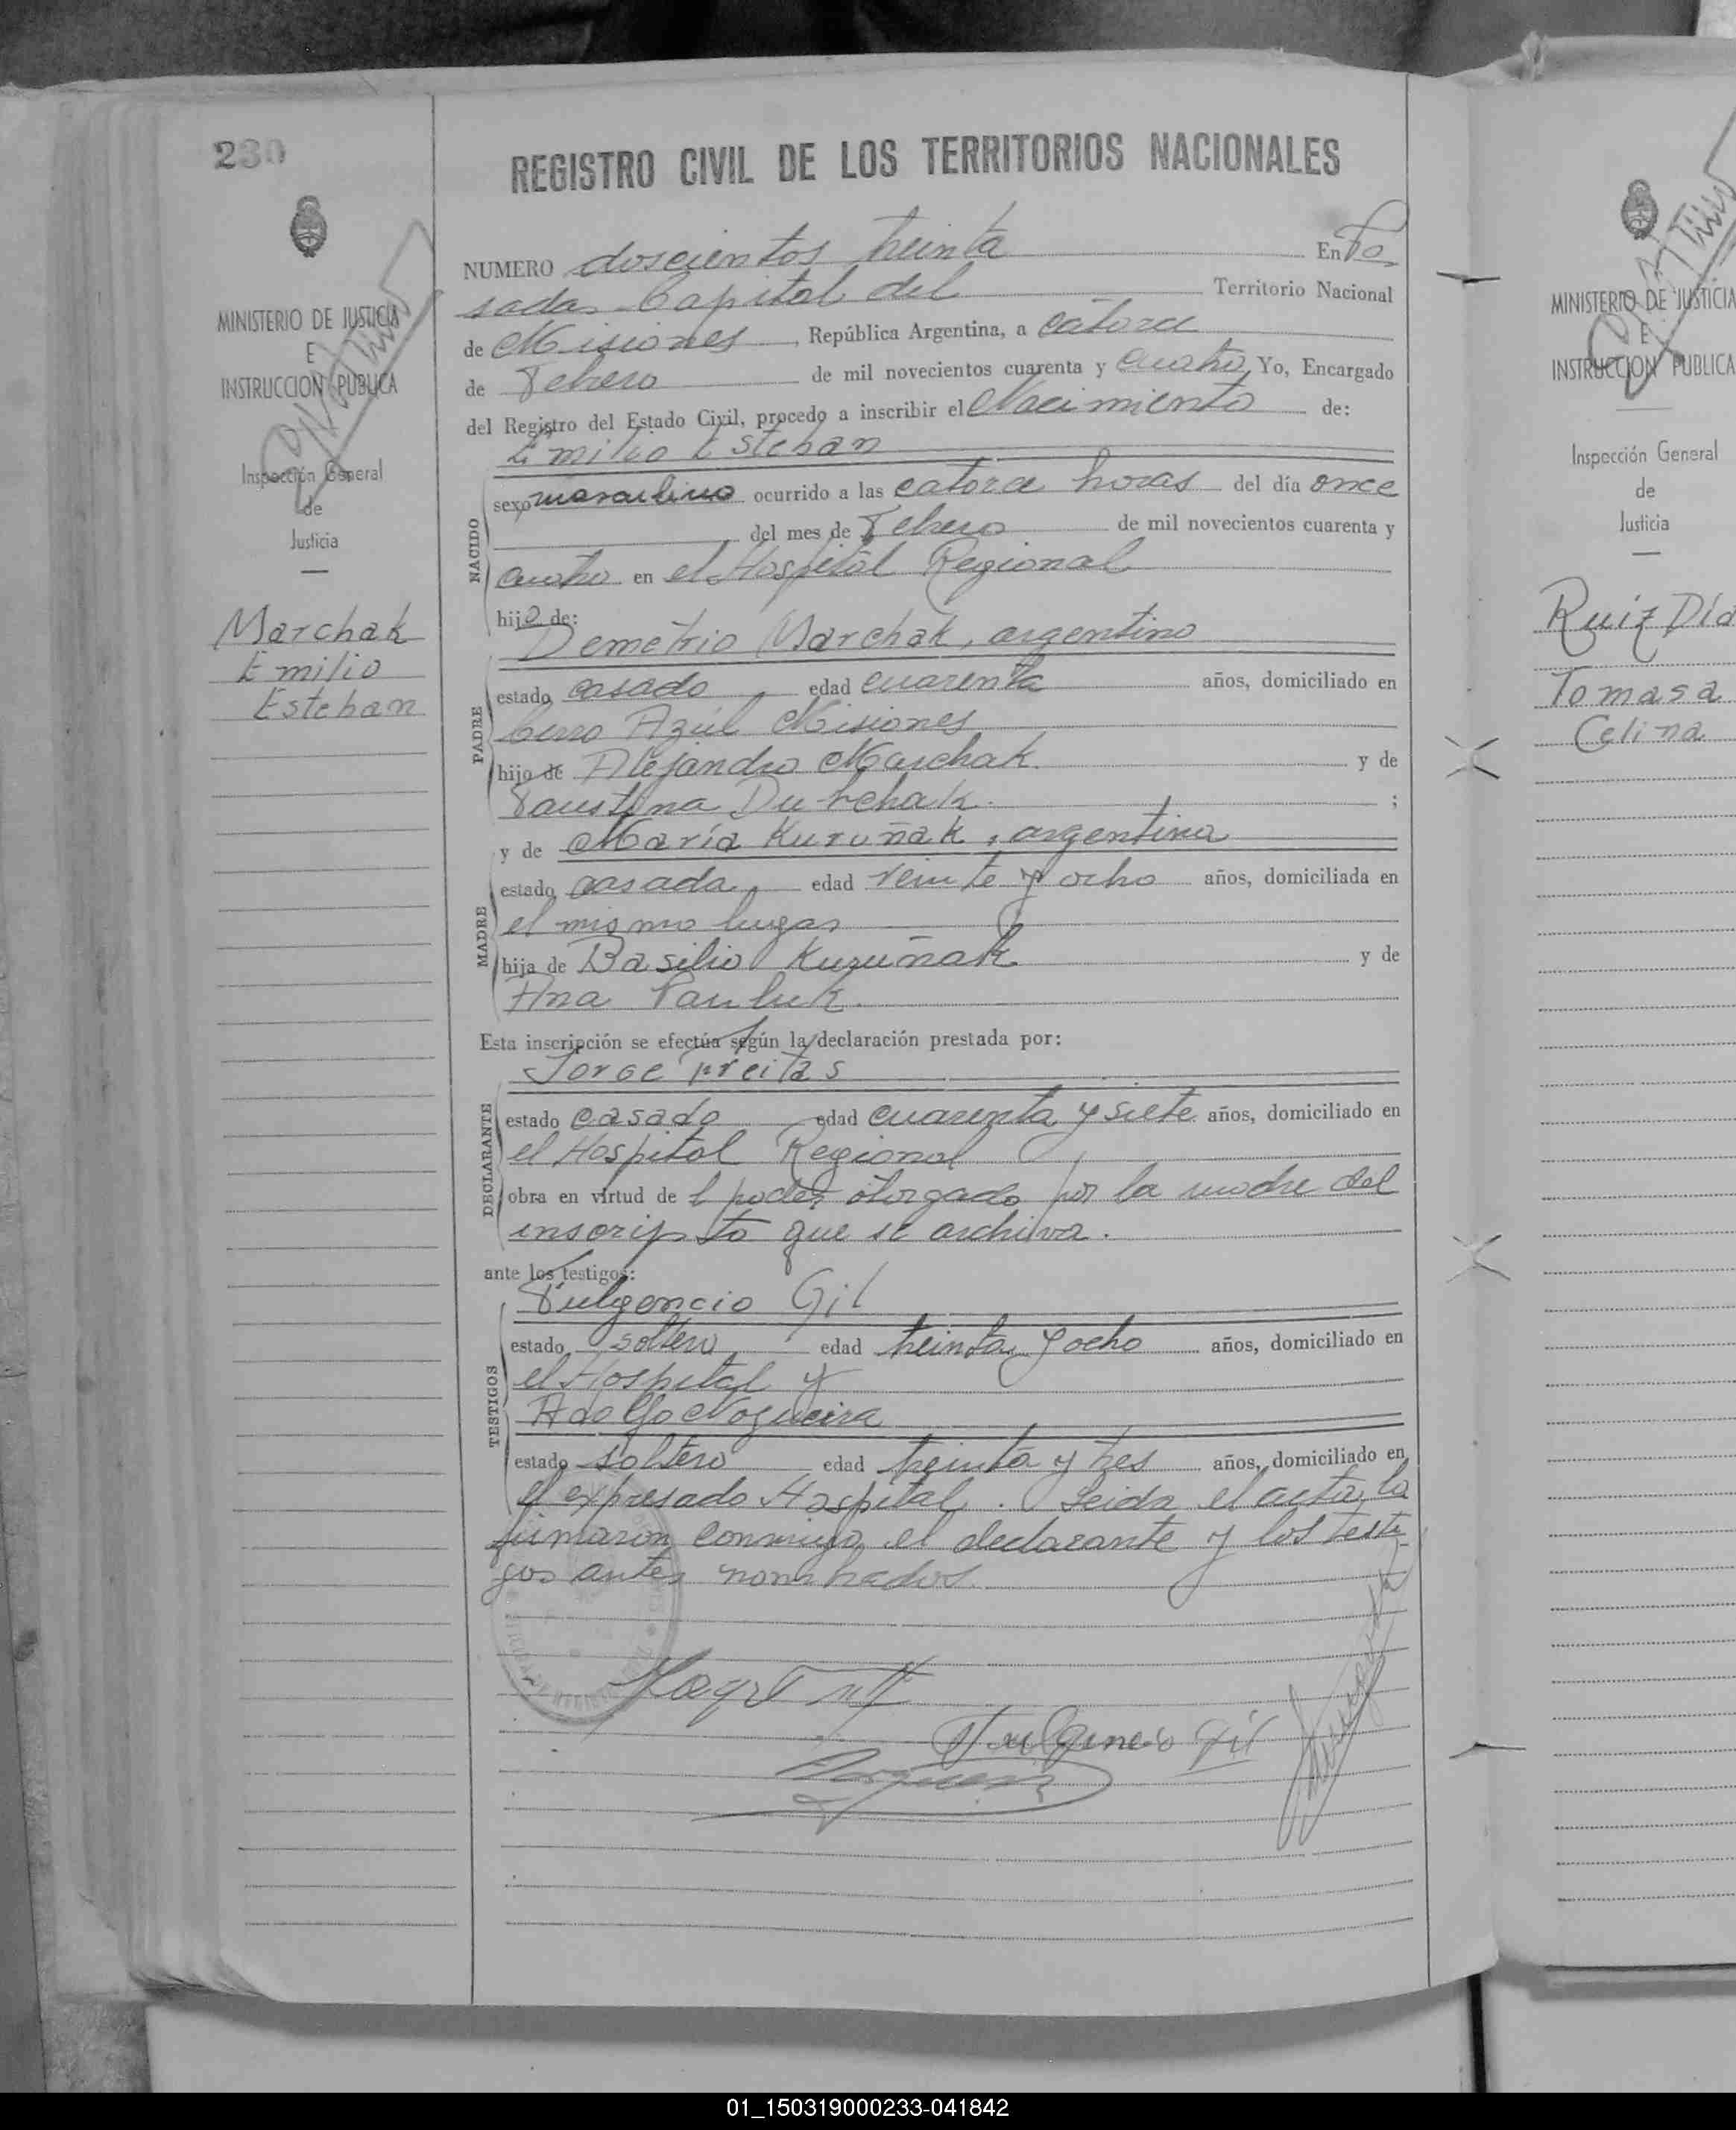 230
MINISTERIO DE JUSTICIA
E
INSTRUCCION PUBLICA
Inspección General
de
Justicia
Marchak
Emilio
Esteban
REGISTRO CIVIL DE LOS TERRITORIOS NACIONALES
NUMERO doscientos treinta En Po
sadas Capital del Territorio Nacional
de Misiones, República Argentina, a catorce
de Febrero de mil novecientos cuarenta y cuatro, Yo, Encargado
del Registro del Estado Civil, procedo a inscribir el Nacimiento de:
Emilio Esteban
NACIDO
sexo masculino ocurrido a las catorce horas del día once
del mes de Febrero de mil novecientos cuarenta y
cuatro en el Hospital Regional
hijo de:
Demetrio Marchak, argentino
PADRE
estado casado, edad cuarenta años, domiciliado en
Cerro Azúl Misiones
hijo de Alejandro Marchak y de
Faustina Dubchak ;
y de María Kuruñak, argentina
MADRE
estado casada, edad veinte y ocho años, domiciliada en
el mismo lugar
hija de Basilio Kuruñak y de
Ana Pauluk.
Esta inscripción se efectúa según la declaración prestada por:
Jorge Freitas
DECLARANTE
estado casado edad cuarenta y siete años, domiciliado en
el Hospital Regional
obra en virtud de l poder otorgado por la madre del
inscripto que se archiva.
ante los testigos:
Fulgencio Gil
TESTIGOS
estado soltero edad treinta y ocho años, domiciliado en
el Hospital y
Adolfo Nogueira
estado soltero edad treinta y tres años, domiciliado en
el expresado Hospital. Leida el acta, la
firmaron conmigo el declarante y los testi
gos antes nombrados.
Fulgencio Gil
MINISTERIO DE JUSTICIA
E
INSTRUCCION PUBLICA
Inspección General
de
Justicia
Ruiz Día
Tomasa
Celina
01_150319000233-041842